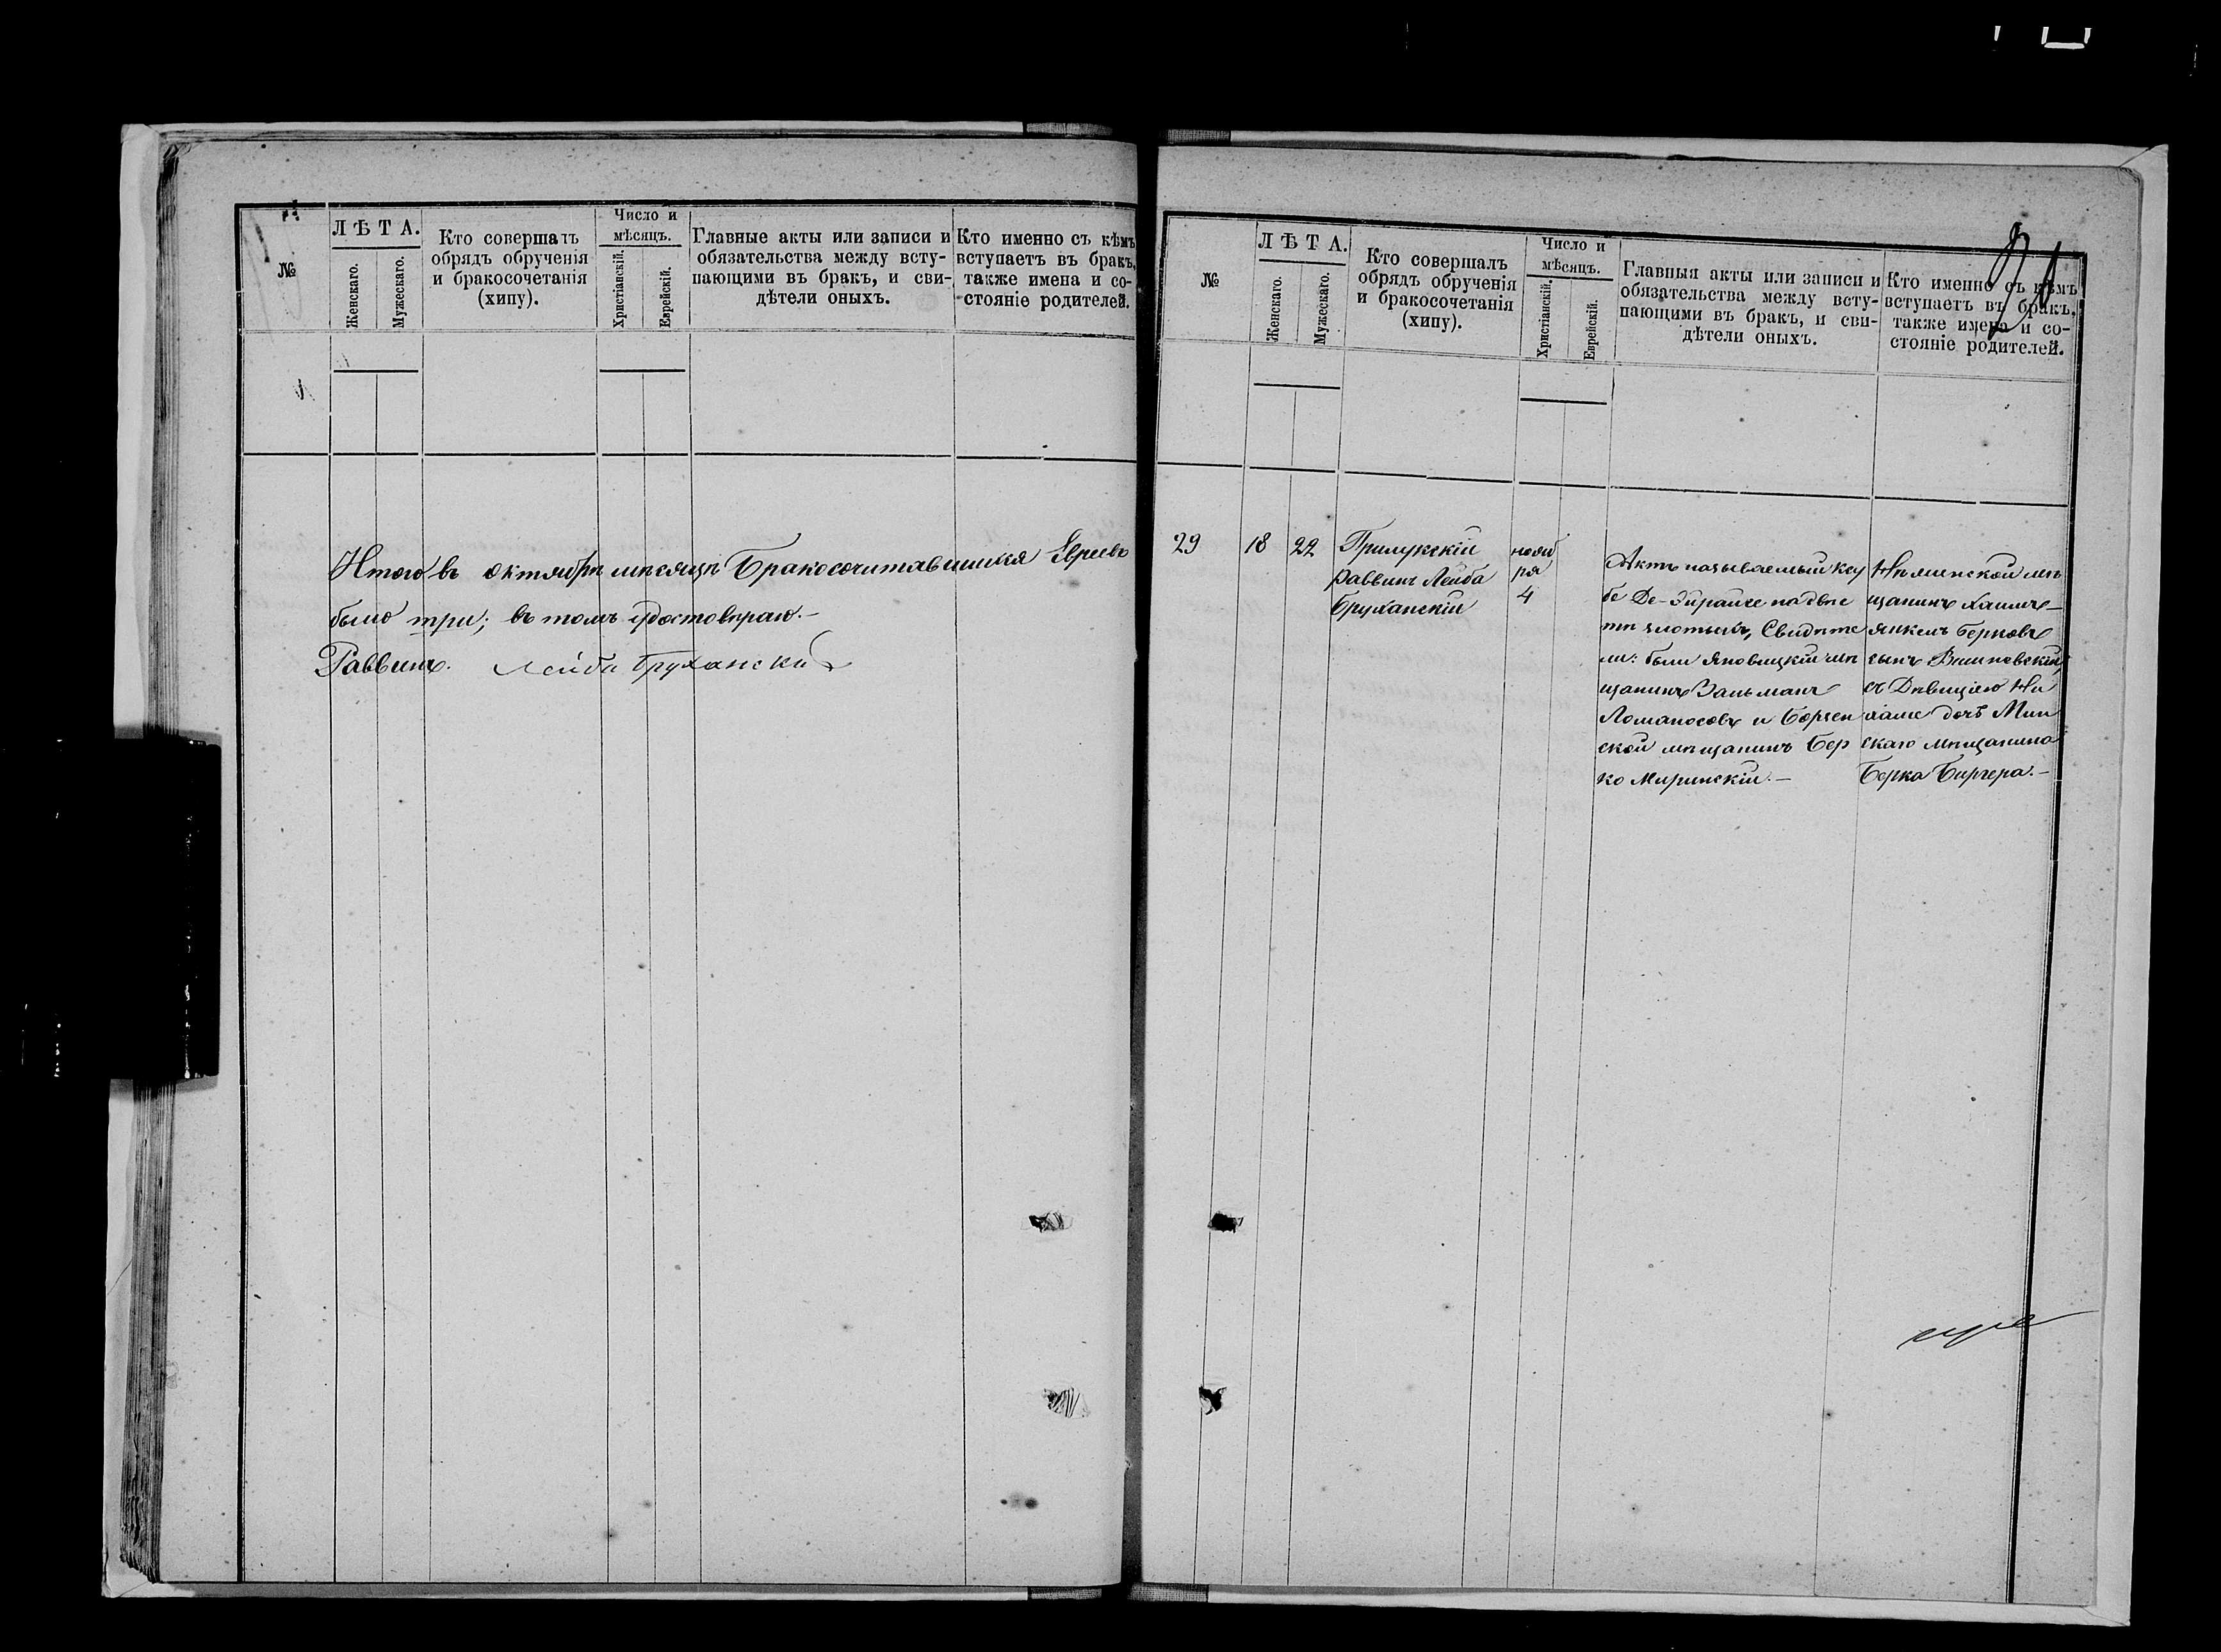 №
ЛѢТА.
Женскаго.
Мужескаго.
Кто совершалъ
обрядъ обрученія
и бракосочетанія
(хипу).
Число и
мѣсяцъ.
Христіанскій.
Еврейскій.
Главные акты или записи и
обязательства между всту-
пающими въ бракъ, и сви-
дѣтели оныхъ.
Кто именно съ кѣмъ
вступаетъ въ бракъ,
также имена и со-
стояніе родителей.
Итого въ октябрѣ мѣсяцѣ Бракосочитавшихся Евреевъ
было три; въ томъ удостовѣраю.-
Раввинъ. Лейба Бруханскій
№
ЛѢТА.
Женскаго.
Мужескаго.
Кто совершалъ
обрядъ обрученія
и бракосочетанія
(хипу).
Число и
мѣсяцъ.
Христіанскій.
Еврейскій.
Главныя акты или записи и
обязательства между всту-
пающими въ бракъ, и сви-
дѣтели оныхъ.
Кто именно съ кѣмъ
вступаетъ въ бракъ,
также имена и со-
стояніе родителей.
29
18
22
Прилукскій
раввинъ Лейба
Бруханскій
нояб
ря
4
Актъ называемый ксу
бе Де-Эйрайсе на двѣс
ти злотыхъ, Свидѣте
ли: были Яновицкій мѣ
щанинъ Зальманъ
Ломаносовъ и Борзен
ской мѣщанинъ Бер
ко Миринскій.-
мѣ
щанинъ Хаимъ-
Янкель Берковъ
сынъ Вишневскій,
съ Дѣвицею
дочь Мин
скаго мѣщанина
Берка Биргера.-